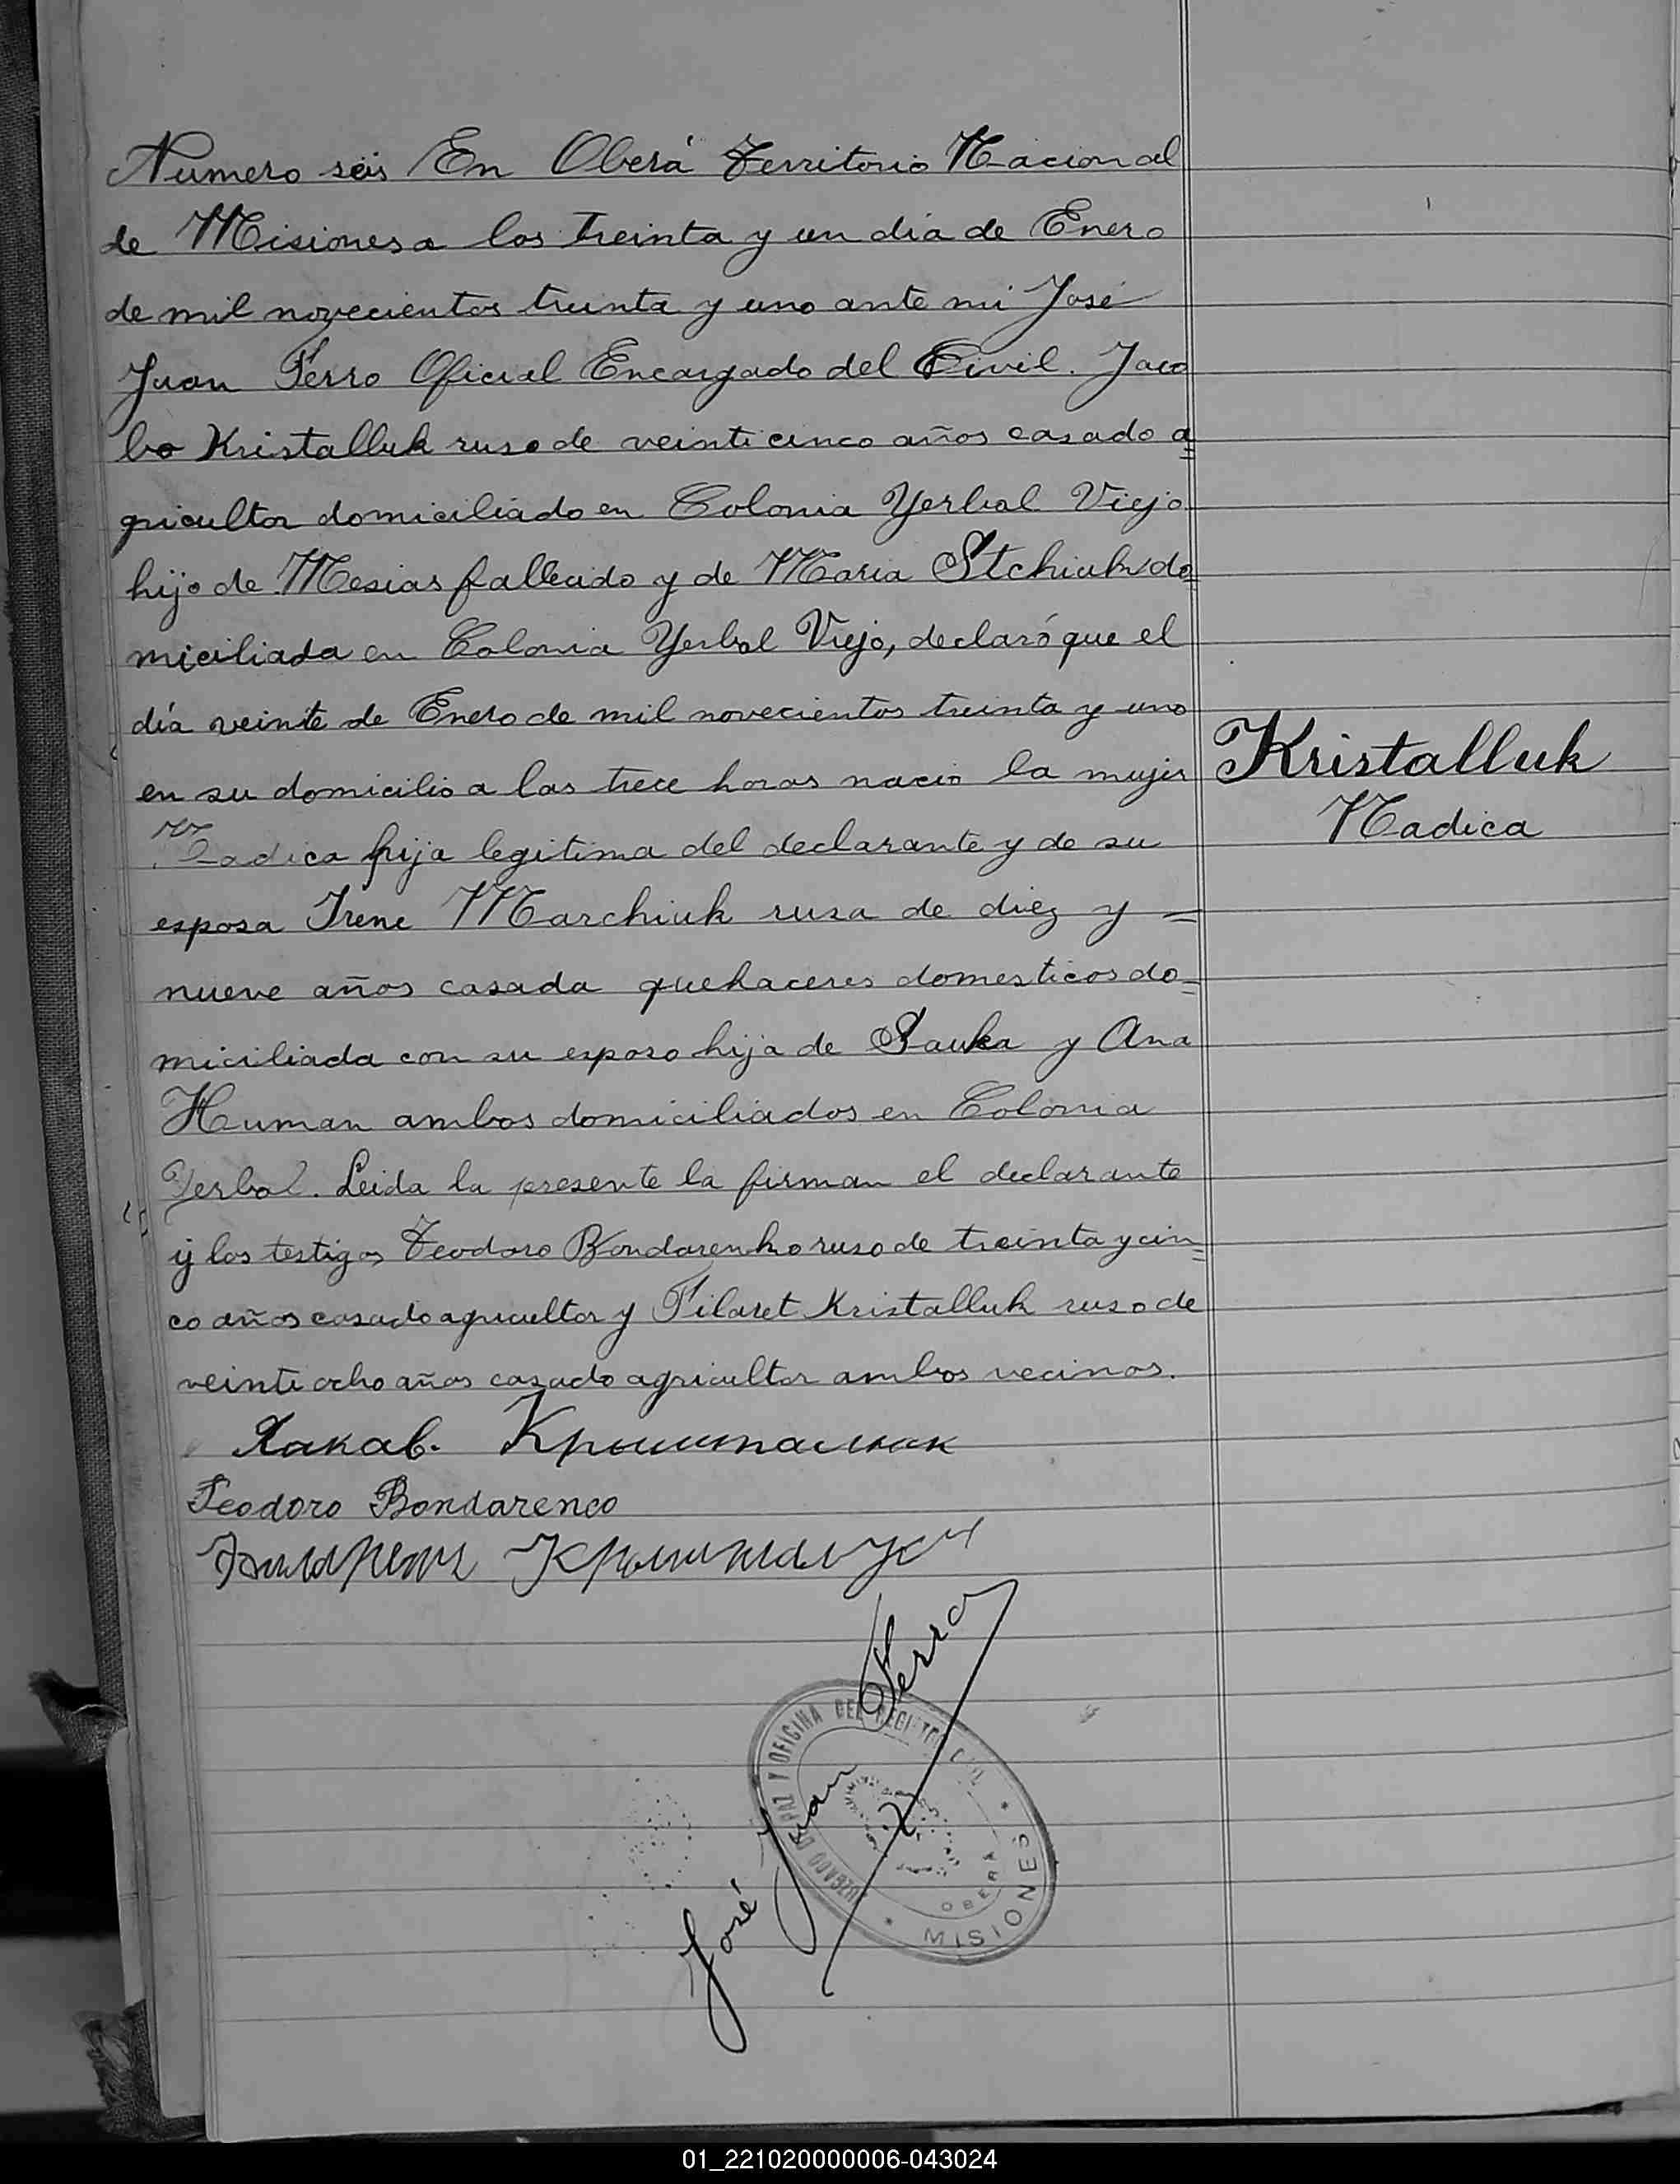 Numero seis En Oberá Territorio Nacional
de Misiones a los treinta y un dia de Enero
de mil novecientos treinta y uno ante mi José
Juan Ferro Oficial Encargado del Civil. Jaco
bo Kristalluk ruso de veinticinco años casado a=
gricultor domiciliado en Colonia Yerbal Viejo
hijo de Mesias fallecido y de Maria Stchiuk do=
miciliada en Colonia Yerbal Viejo, declaró que el
día veinte de Enero de mil novecientos treinta y uno
en su domicilio a las trece horas nacio la mujer
Kristalluk
Nadica
Nadica hija legitima del declarante y de su
esposa Irene Marchiuk rusa de diez y =
nueve años casada quehaceres domesticos do=
miciliada con su esposo hija de Sauka y Ana
Human ambos domiciliados en Colonia
Yerbal. Leida la presente la firman el declarante
y los testigos Teodoro Bondarenko ruso de treinta y cin=
co años casado agricultor y Filaret Kristalluk ruso de
veintiocho años casado agricultor ambos vecinos.
Якав. Крышталюк
Teodoro Bondarenco
José Juan Ferro
JUZGADO DE PAZ Y OFICINA DEL REGISTRO CIVIL
OBERÁ
* MISIONES *
01_221020000006-043024